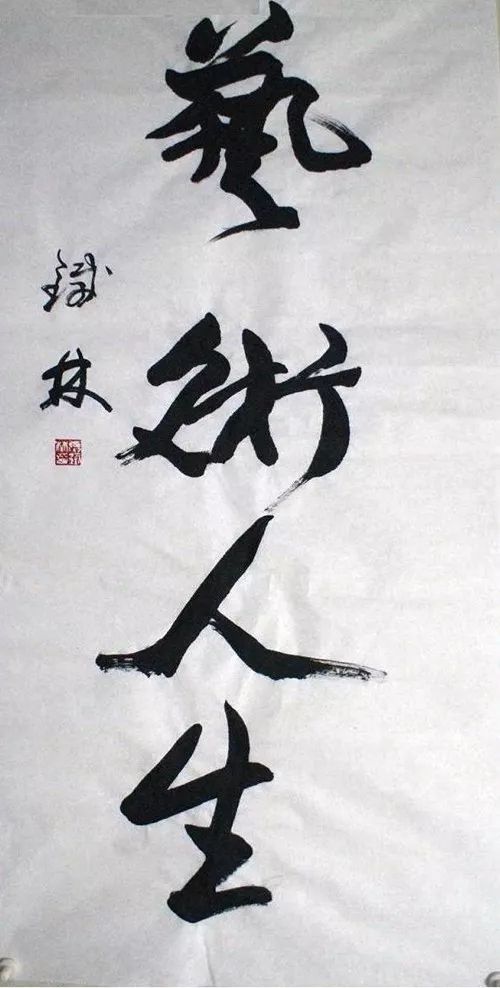 藝術人生
鐵林